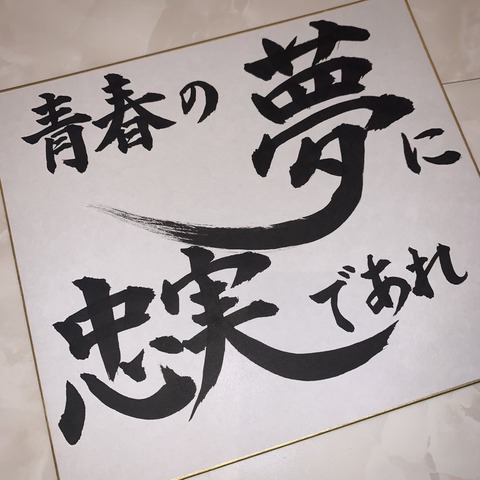 青春の夢に
忠実であれ